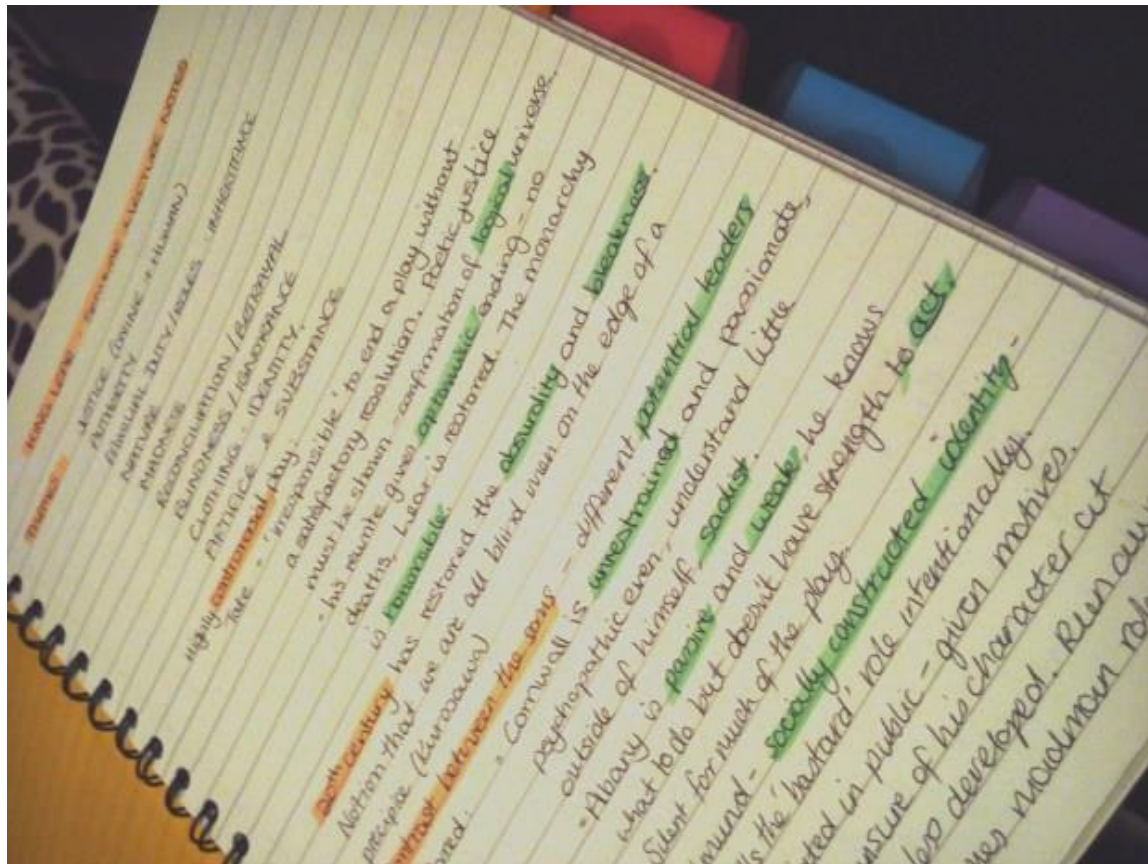 KING LEAR - LECTURE NOTES
THEMES
JUSTICE (DIVINE + HUMAN)
AUTHORITY
FAMILIAL DUTY/ROLES : INHERITANCE
NATURE
MADNESS
RECONCILIATION / BETRAYAL
BLINDNESS / IGNORANCE
CLOTHING : IDENTITY,
ARTIFICE & SUBSTANCE
Highly controversial play:
Tate - 'irresponsible' to end a play without
a satisfactory resolution. Poetic justice
must be shown - confirmation of logical universe.
- his rewrite gives optimistic ending - no
deaths, Lear is restored. The monarchy
is
20th century has restored the absurdity and bleakness.
Notion that we are all blind men on the edge of a
precipice (Kurosawa)
between the sons - different potential leaders
- Cornwall is unrestrained and passionate,
psychopathic even, understand little
outside of himself. Sadist.
- Albany is passive and weak, he knows
what to do but doesn't have strength to act.
Silent for much of the play.
- socially constructed identity -
the 'bastard' role intentionally.
in public - given motives.
of his character cut
less developed. Run out